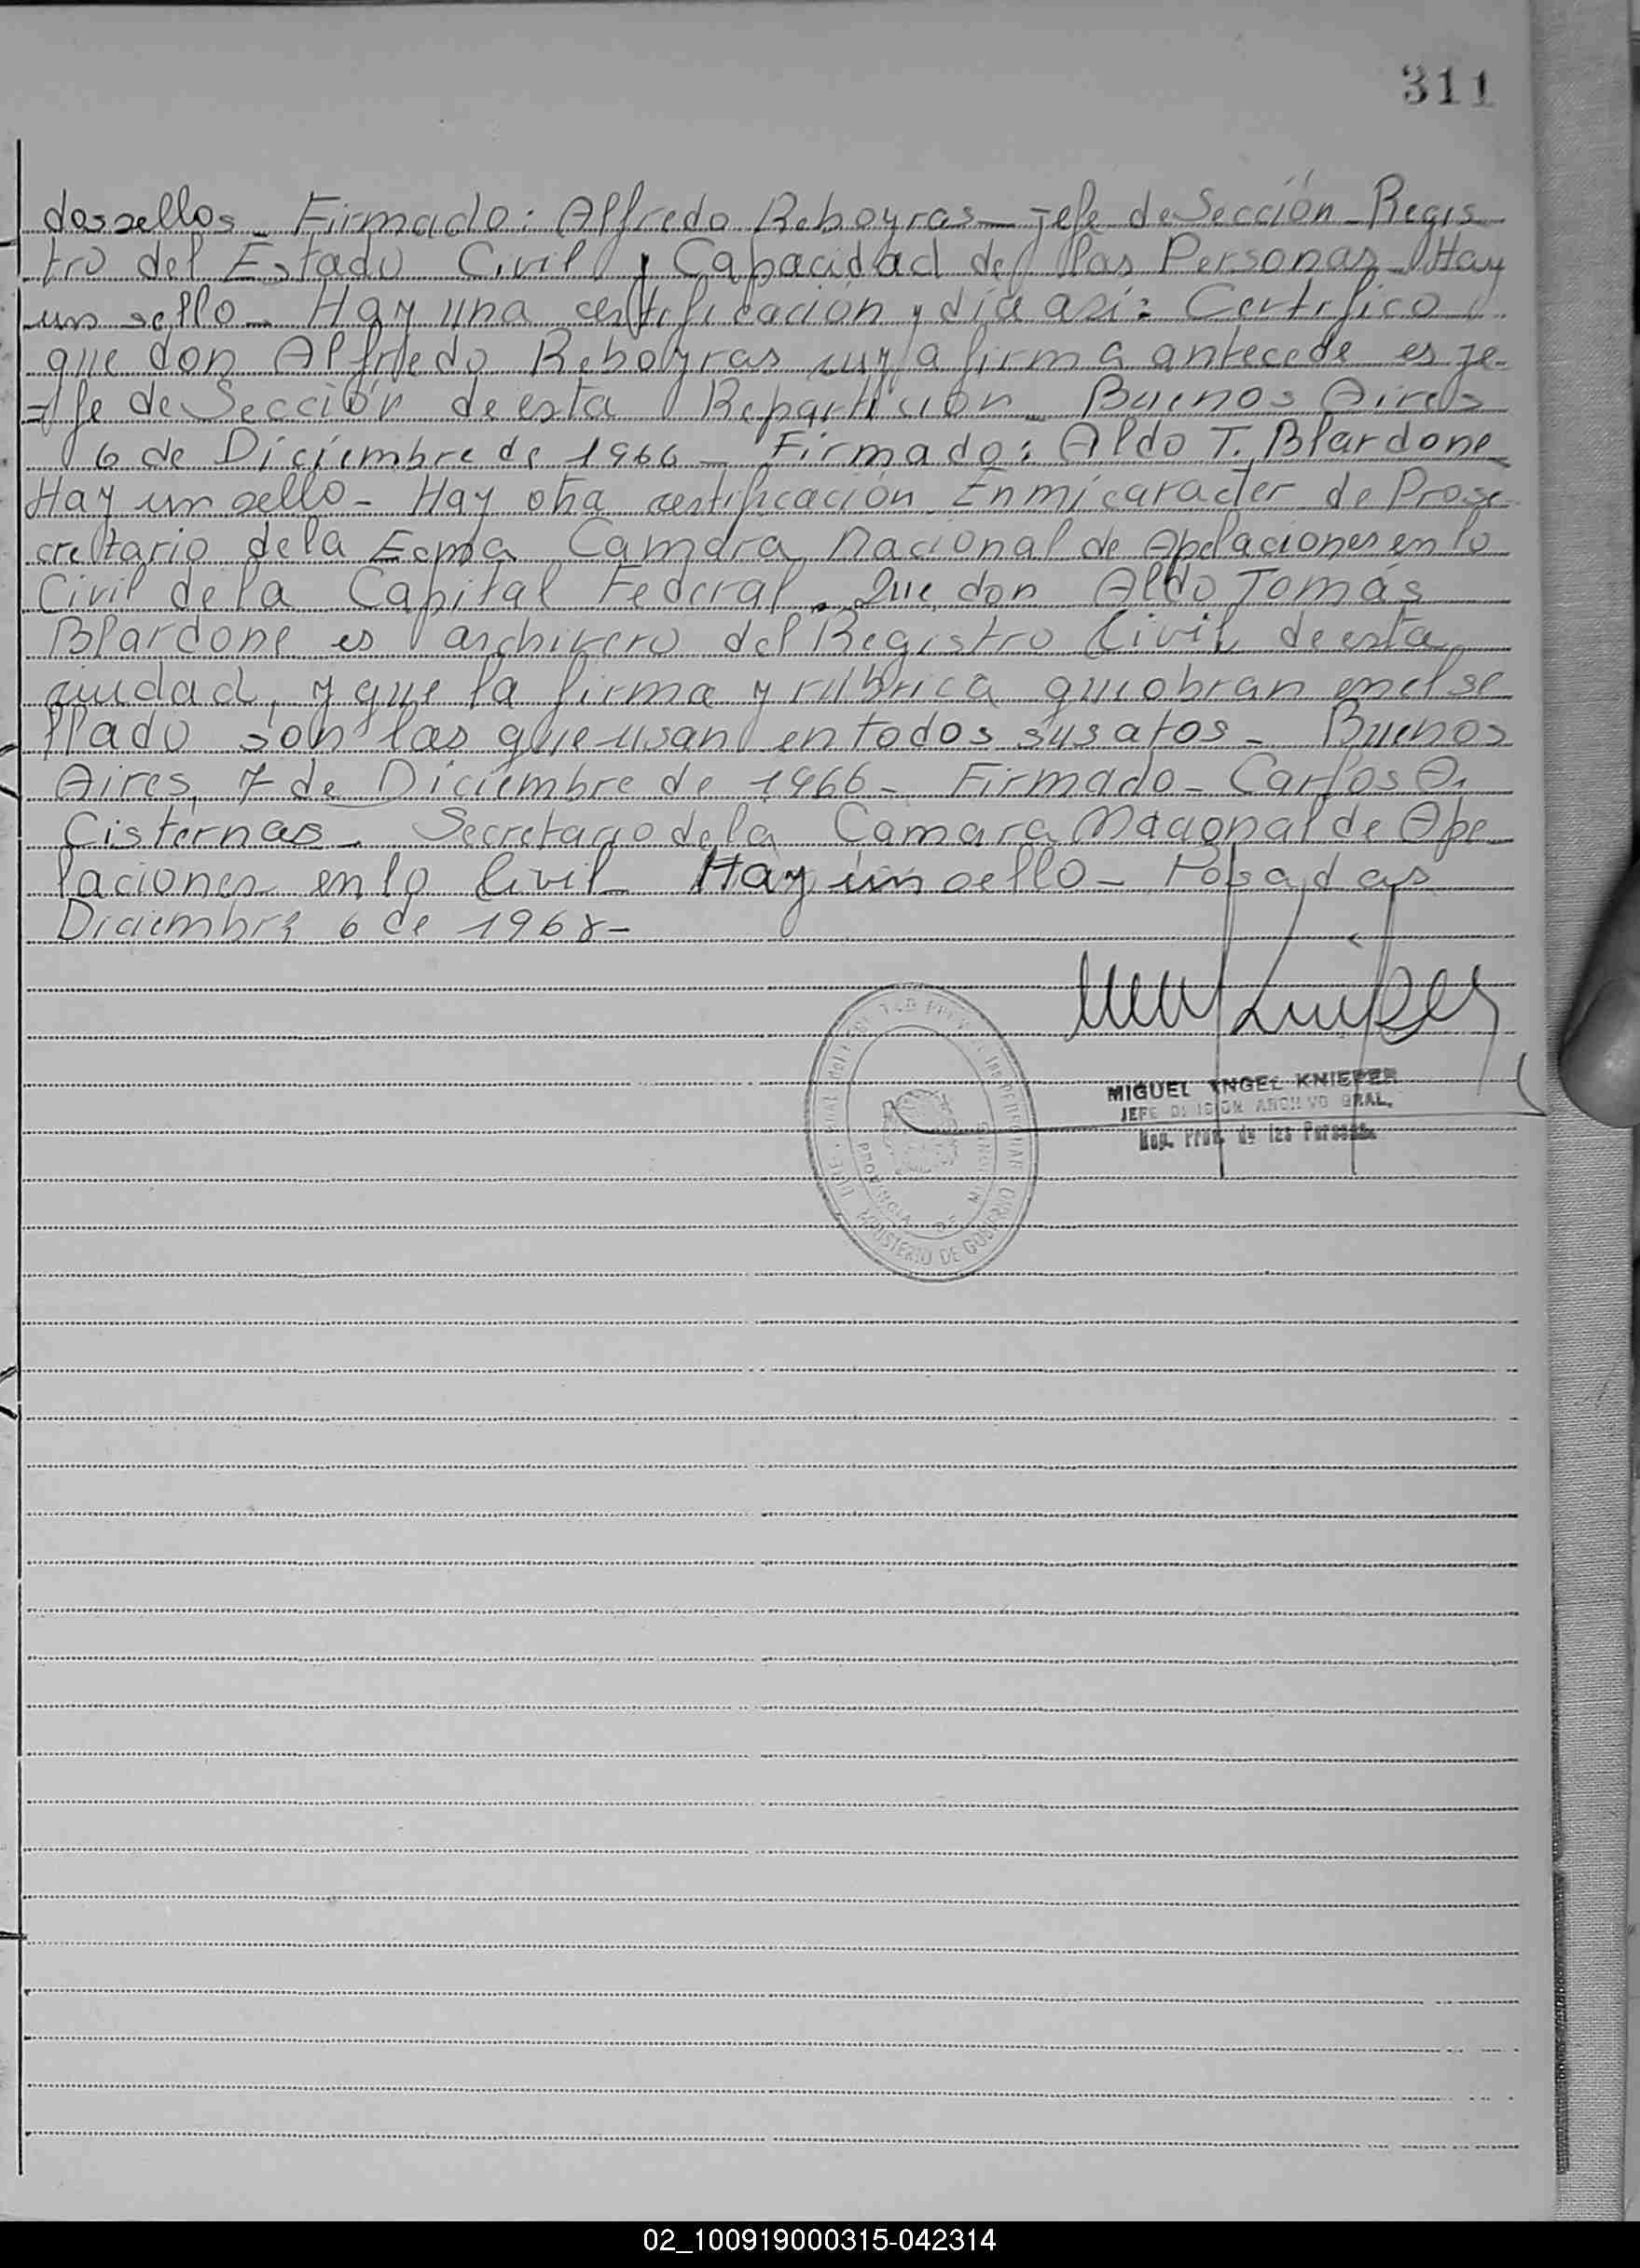 311
dos sellos - Firmado: Alfredo Reboyras - Jefe de Sección - Regis
tro del Estado Civil y Capacidad de las Personas - Hay
un sello - Hay una certificación y día así: Certifico
que don Alfredo Reboyras cuya firma antecede es je-
=fe de Sección de esta Repartición - Buenos Aires
6 de Diciembre de 1966 - Firmado: Aldo T. Blardone
Hay un sello - Hay otra certificación - En mi caracter de Prose
cretario de la Ecma Camara Nacional de Apelaciones en lo
Civil de la Capital Federal. Que don Aldo Tomás
Blardone es archivero del Registro Civil de esta
ciudad, y que la firma y rúbrica qu obran en el se
llado son las que usan en todos sus atos - Buenos
Aires, 7 de Diciembre de 1966 - Firmado - Carlos A.
Cisternas - Secretario de la Camara Nacional de Ape
laciones en lo Civil - Hay un sello - Posadas
Diciembre 6 de 1968 -
MIGUEL ANGEL KNIEPER
JEFE DIVISION ARCHIVO GRAL.
Reg. Prov. de las Personas
MINISTERIO DE GOBIERNO
PROVINCIA DE MISIONES
02_100919000315-042314